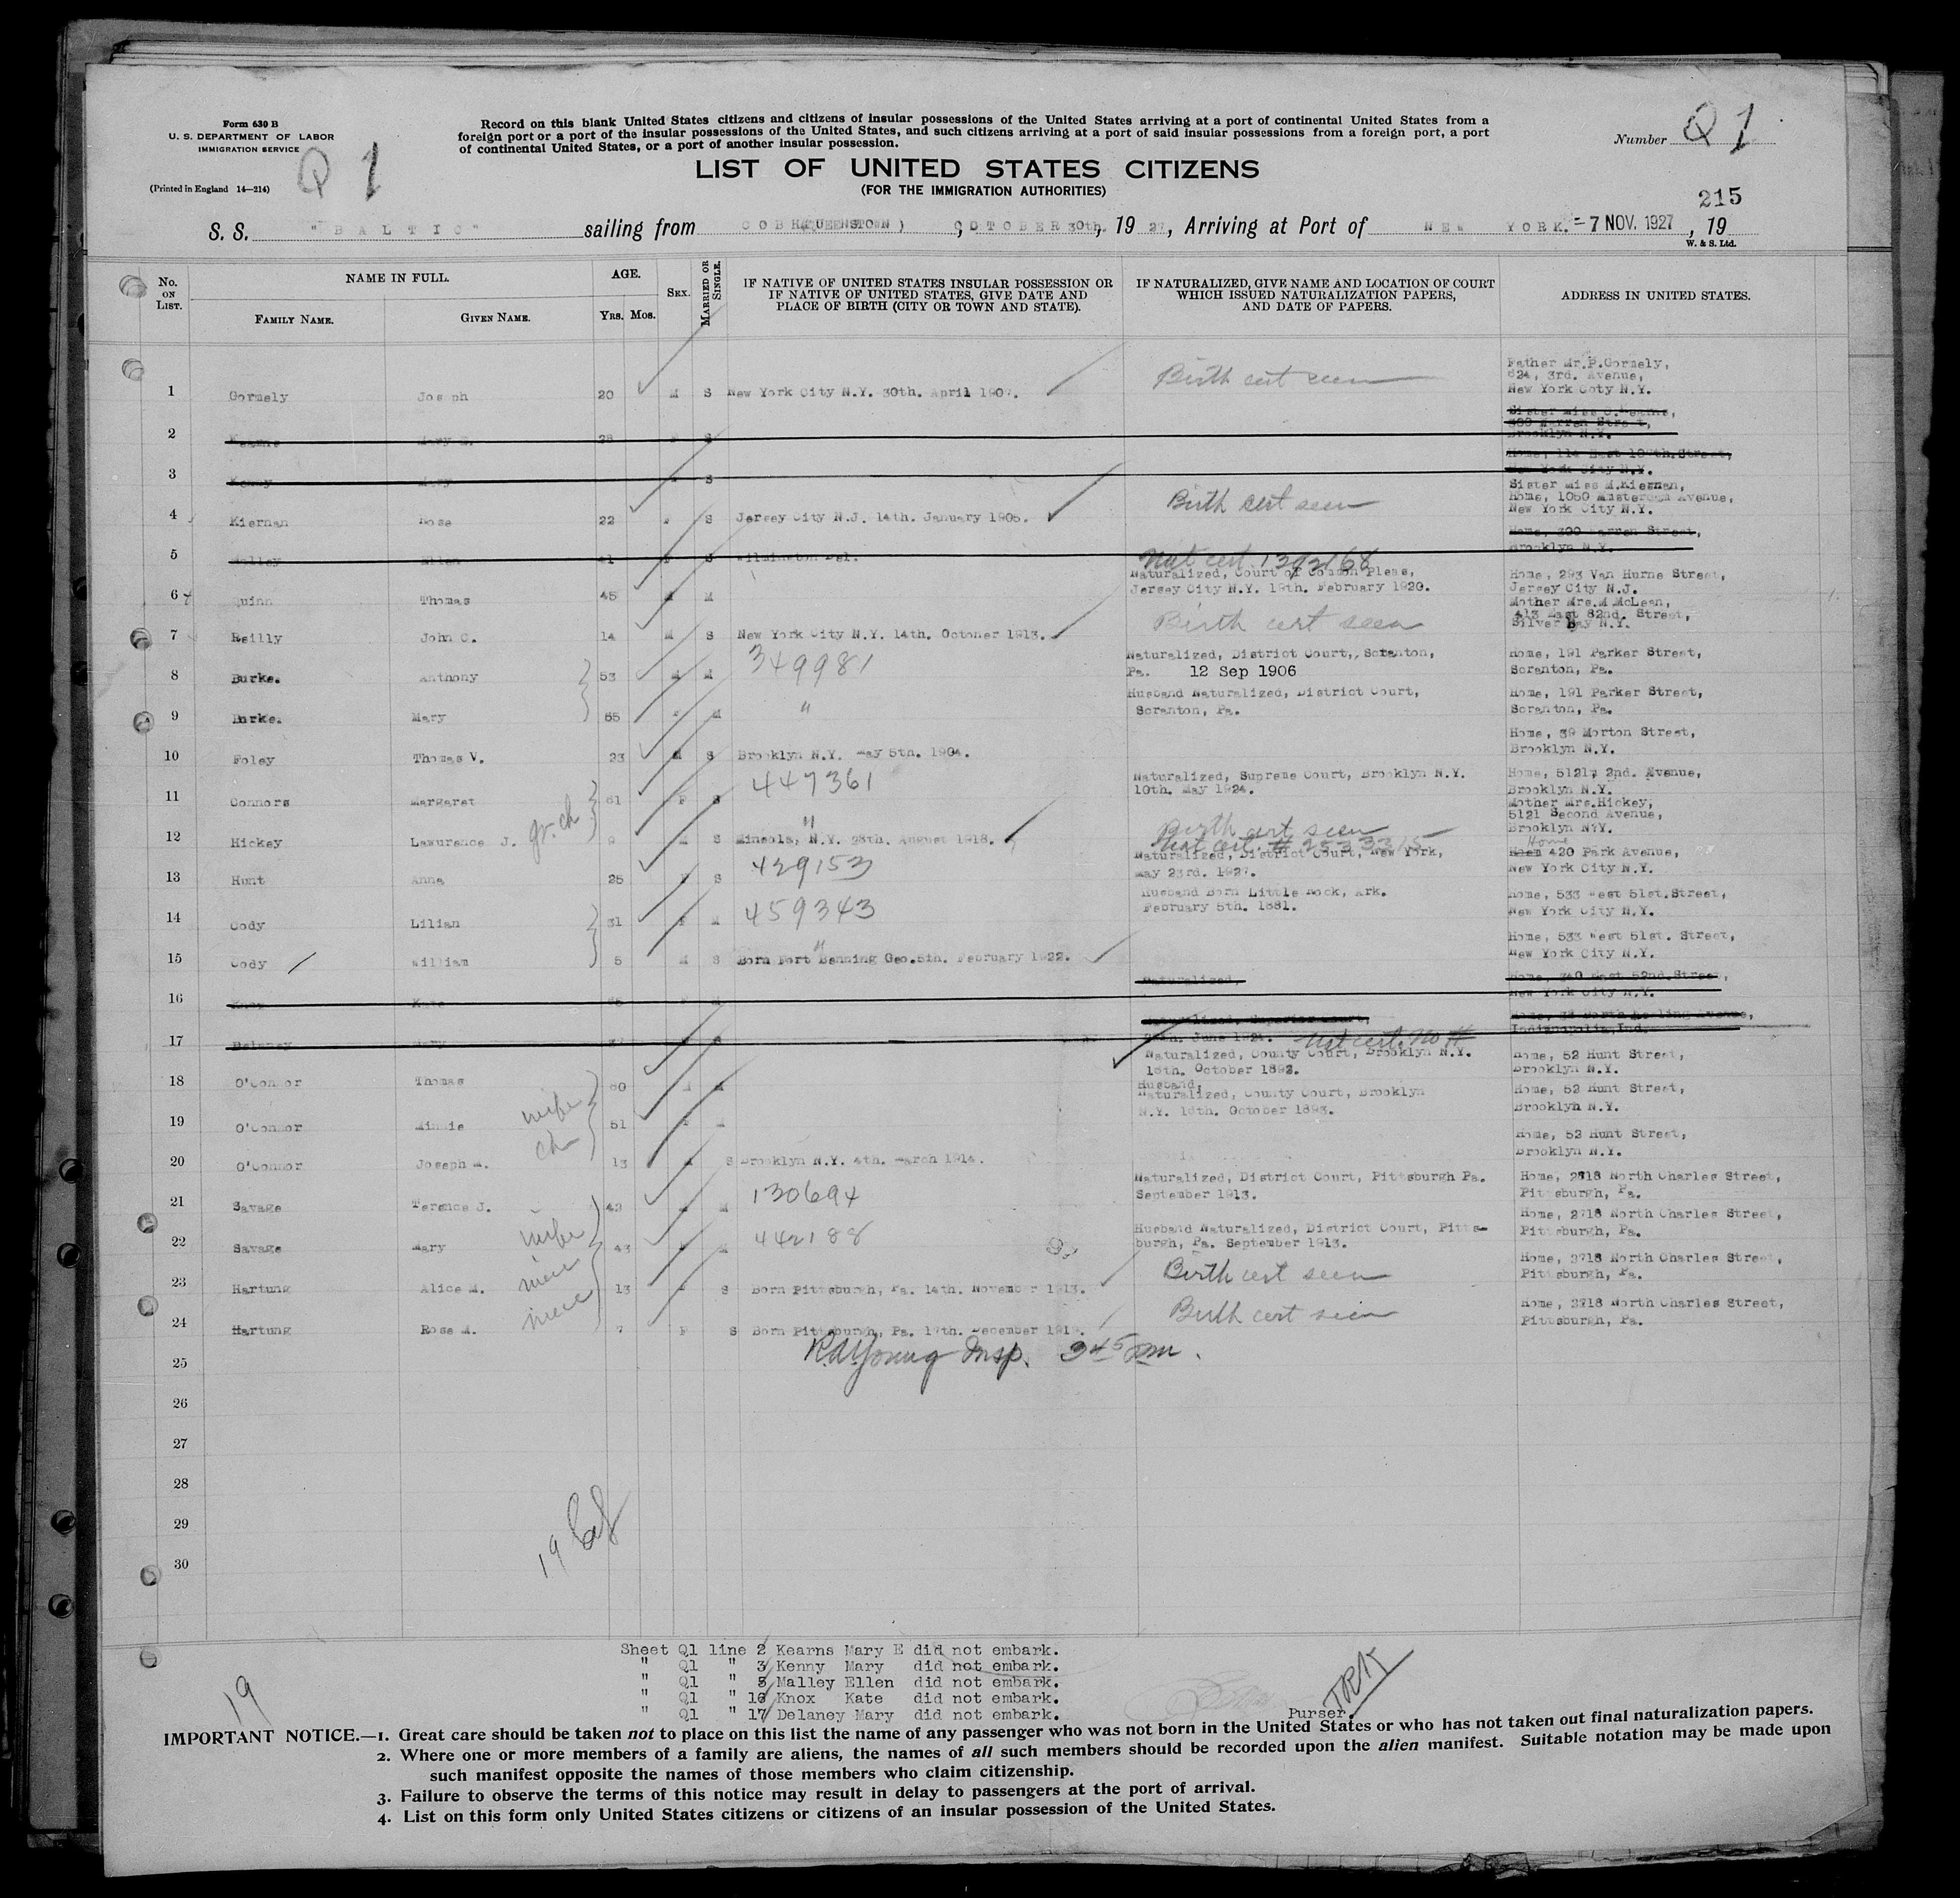 Form 630 B
U. S. DEPARTMENT OF LABOR
IMMIGRATION SERVICE
(Printed in England 14—214)
Q 1
Record on this blank United States citizens and citizens of insular possessions of the United States arriving at a port of continental United States from a
foreign port or a port of the insular possessions of the United States, and such citizens arriving at a port of said insular possessions from a foreign port, a port
of continental United States, or a port of another insular possession.
LIST OF UNITED STATES CITIZENS
(FOR THE IMMIGRATION AUTHORITIES)
Number Q 1
215
S. S. "BALTIC" sailing from COBH(QUEENSTOWN), OCTOBER 30th, 1927, Arriving at Port of NEW YORK. - 7 NOV. 1927, 19
W. & S. Ltd.
No. ON LIST. NAME IN FULL. AGE. SEX. MARRIED OR SINGLE. IF NATIVE OF UNITED STATES INSULAR POSSESSION OR IF NATIVE OF UNITED STATES, GIVE DATE AND PLACE OF BIRTH (CITY OR TOWN AND STATE). IF NATURALIZED, GIVE NAME AND LOCATION OF COURT WHICH ISSUED NATURALIZATION PAPERS, AND DATE OF PAPERS. ADDRESS IN UNITED STATES.
FAMILY NAME. GIVEN NAME. Yrs. Mos.
1 Gormely Joseph 20 M S New York City N.Y. 30th. April 1907. Birth cert seen Father Mr.P.Gormely, 824, 3rd. Avenue, New York Coty N.Y.
2 Kearns Mary E. 28 F S Sister Miss C.Kearns, 300 Warren Street, Brooklyn N.Y.
3 Kenny Mary F S Home, 114 East 10 th.Street, New York City N.Y.
4 Kiernan Rose 22 F S Jersey City N.J. 14th. January 1905. Birth cert seen Sister Miss M.Kiernan, Home, 1050 Avenue, New York City N.Y.
5 Malley Ellen 41 F S Wilmington Del. Home, 300 Warren Street, Brooklyn N.Y.
6 Quinn Thomas 45 M M Nat cert 1392168 Naturalized, Court of Common Pleas, Jersey City N.Y. 19th. February 1920. Home, 293 Van Hurne Street, Jersey City N.J.
7 Reilly John C. 14 M S New York City N.Y. 14th. October 1913. Birth cert seen Mother Mrs.M McLean, 413 East 82nd. Street, Silver Bay N.Y.
8 Burke. Anthony 53 M M 349981 Naturalized, District Court,, Scranton, Pa. 12 Sep 1906 Home, 191 Parker Street, Scranton, Pa.
9 Burke. Mary 65 F M " Husband Naturalized, District Court, Scranton, Pa. Home, 191 Parker Street, Scranton, Pa.
10 Foley Thomas V. 23 M S Brooklyn N.Y. May 5th. 1904. Home, 39 Morton Street, Brooklyn N.Y.
11 Connors Margaret 61 F S 447361 Naturalized, Supreme Court, Brooklyn N.Y. 10th. May 1924. Home, 5121, 2nd. Avenue, Brooklyn N.Y.
12 Hickey Lawurence J. gr. ch 9 M S " Mineola, N.Y. 28th. August 1918. Birth cert seen Mother Mrs.Hickey, 5121 Second Avenue, Brooklyn N.Y.
13 Hunt Anna 25 F S 429153 Nat cert. # 2533315 Naturalized, District Court, New York, May 23rd. 1927. Home 420 Park Avenue, New York City N.Y.
14 Cody Lilian 31 F M 459343 Husband Born Little Rock, Ark. February 5th. 1881. Home, 533 West 51st.Street, New York City N.Y.
15 Cody William 5 M S " Born Fort Benning Geo.5th. February 1922. Home, 533 West 51st. Street, New York City N.Y.
16 Knox Kate F M Naturalized, Home, 340 East 52nd.Street, New York City N.Y.
17 Delaney Mary S Naturalized, Superior Court, June 1924. Indianapolis,Ind.
18 O'Connor Thomas 60 M M Nat cert. No # Naturalized, County Court, Brooklyn N.Y. 18th. October 1892. Home, 52 Hunt Street, Brooklyn N.Y.
19 O'Connor Minnie wife 51 F M Husband, Naturalized, County Court, Brooklyn N.Y. 18th. October 1893. Home, 52 Hunt Street, Brooklyn N.Y.
20 O'Connor Joseph M. ch 13 M S Brooklyn N.Y. 4th. March 1914. Home, 52 Hunt Street, Brooklyn N.Y.
21 Savage Terence J. 42 M M 130694 Naturalized, District Court, Pittsburgh Pa. September 1913. Home, 2718 North Charles Street, Pittsburgh, Pa.
22 Savage Mary wife 43 F M 442188 Husband Naturalized, District Court, Pittsburgh, Pa. September 1913. Home, 2718 North Charles Street, Pittsburgh, Pa.
23 Hartung Alice M. niece 13 F S Born Pittsburgh, Pa. 14th. November 1913. Birth cert seen Home, 2718 North Charles Street, Pittsburgh, Pa.
24 Hartung Rose M. niece 7 F S Born Pittsburgh, Pa. 17th. December 1919. Birth cert seen Home, 2718 North Charles Street, Pittsburgh, Pa.
25 RdYoung Insp. 3 45 pm.
26
27
28
29
30
19
Sheet Q1 line 2 Kearns Mary E did not embark.
" Q1 " 3 Kenny Mary did not embark.
" Q1 " 5 Malley Ellen did not embark.
" Q1 " 16 Knox Kate did not embark.
" Q1 " 17 Delaney Mary did not embark.
Purser.
19
IMPORTANT NOTICE.—1. Great care should be taken not to place on this list the name of any passenger who was not born in the United States or who has not taken out final naturalization papers.
2. Where one or more members of a family are aliens, the names of all such members should be recorded upon the alien manifest. Suitable notation may be made upon
such manifest opposite the names of those members who claim citizenship.
3. Failure to observe the terms of this notice may result in delay to passengers at the port of arrival.
4. List on this form only United States citizens or citizens of an insular possession of the United States.